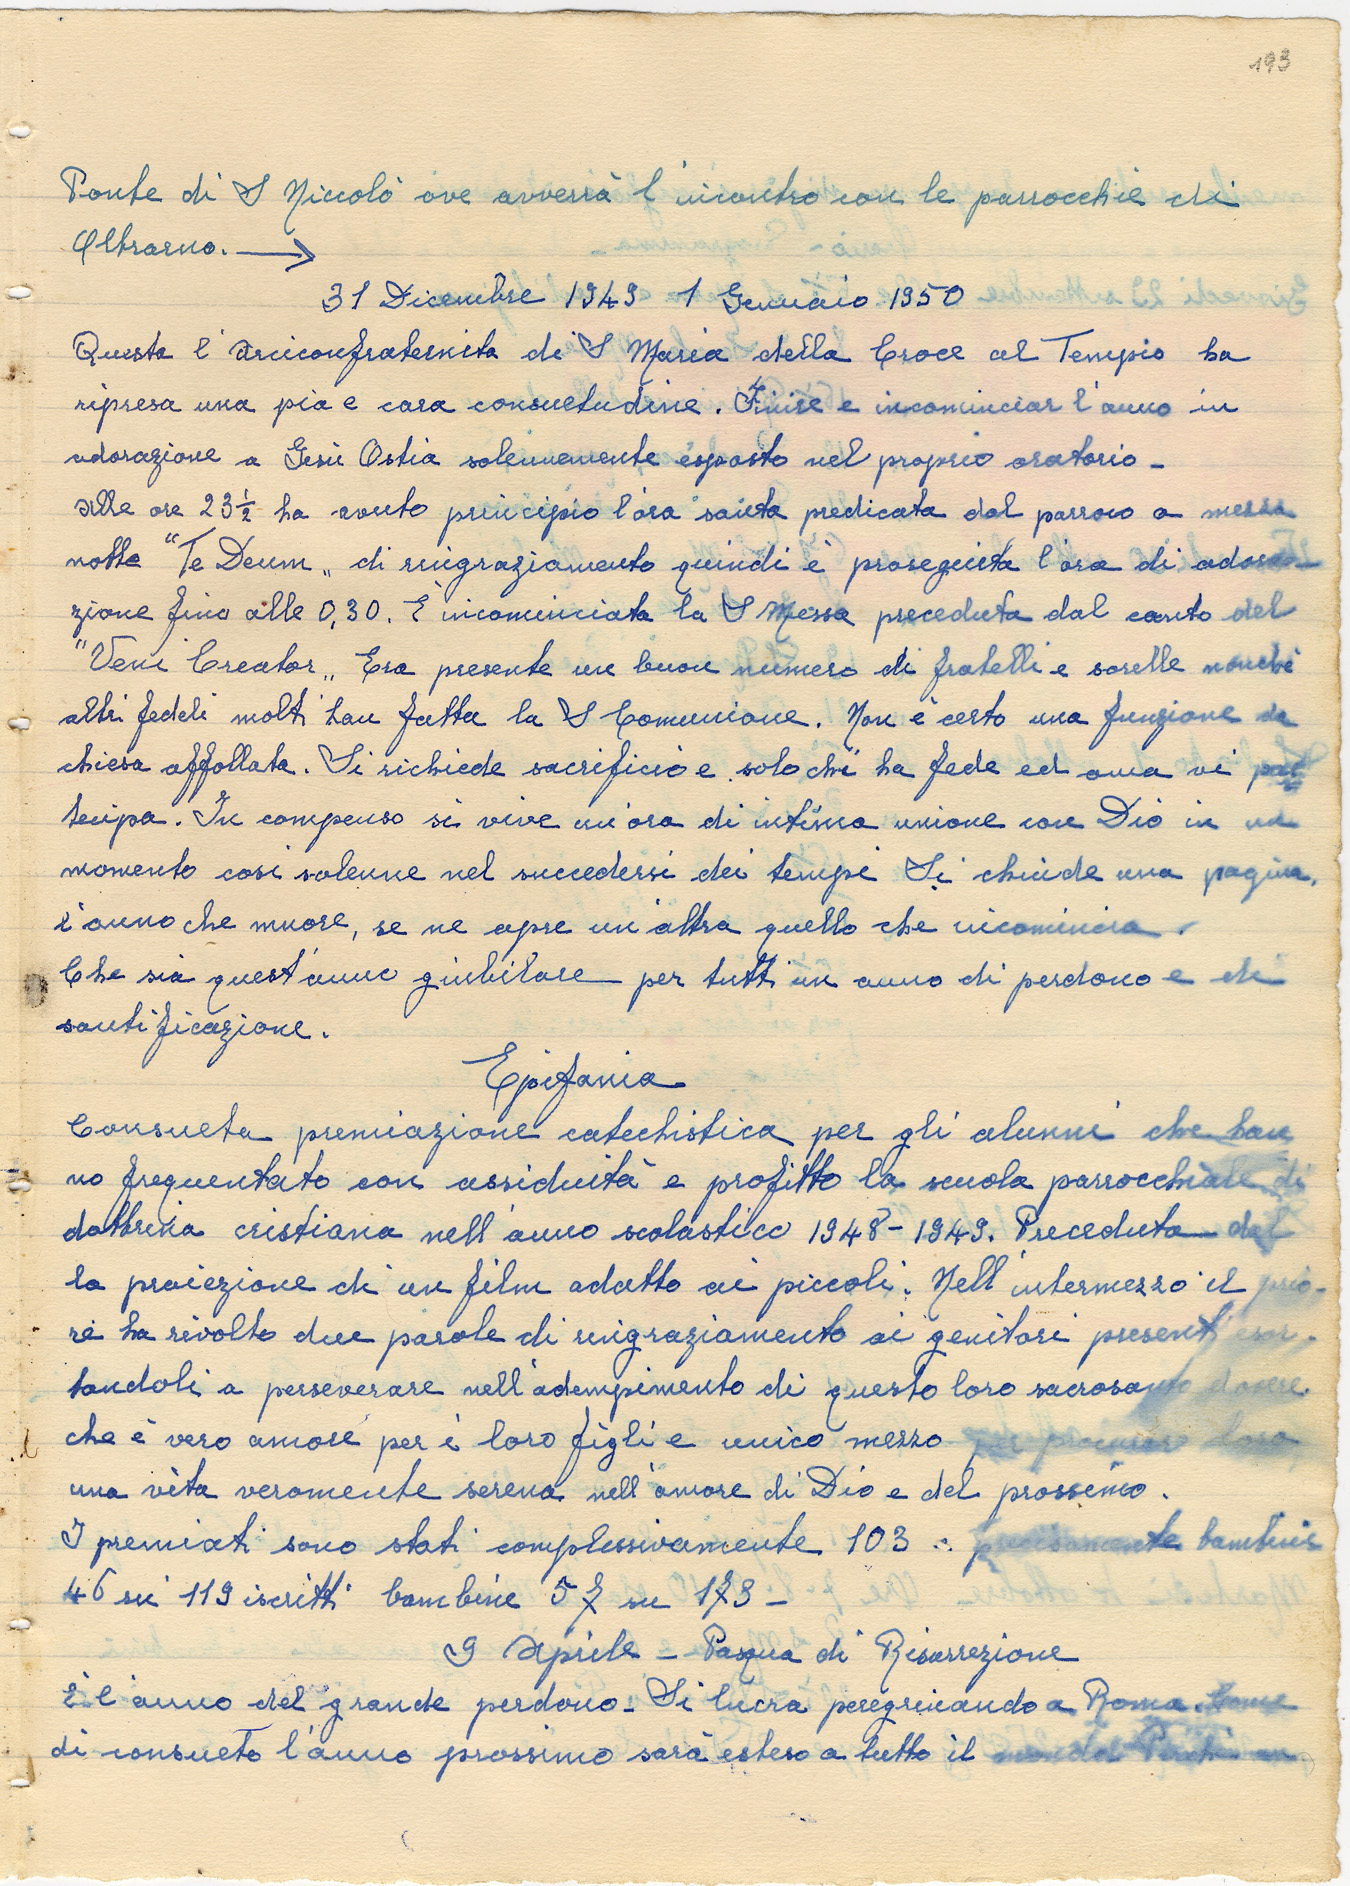 193
Ponte di S Niccolò ove avverrà l'incontro con le parrocchie di
Oltrarno.
31 Dicembre 1949 1 Gennaio 1950
Questa l'arciconfraternita di S Maria della Croce al Tempio ha
ripresa una pia e cara consuetudine. Finire e incominciar l'anno in
adorazione a Gesù Ostia solennemente esposto nel proprio oratorio -
Alle ore 23½ ha avuto principio l'ora santa predicata dal parroco a mezza
notte "Te Deum" di ringraziamento quindi è proseguita l'ora di adora-
zione fino alle 0,30. È incominciata la S Messa preceduta dal canto del
"Veni Creator" Era presente un buon numero di fratelli e sorelle nonché
altri fedeli molti han fatta la S Comunione. Non è certo una funzione da
chiesa affollata. Si richiede sacrificio e solo chi ha fede ed ama vi par
tecipa. In compenso si vive un'ora di intima unione con Dio in un
momento così solenne nel succedersi dei tempi Si chiude una pagina,
l'anno che muore, se ne apre un'altra quello che incomincia.
Che sia quest'anno giubilare per tutti un anno di perdono e di
santificazione.
Epifania
Consueta premiazione catechistica per gli alunni che han
no frequentato con assiduità e profitto la scuola parrocchiale di
dottrina cristiana nell'anno scolastico 1948-1949. Preceduta dal
la proiezione di un film adatto ai piccoli. Nell'intermezzo il prio-
re ha rivolto due parole di ringraziamento ai genitori presenti esor-
tandoli a perseverare nell'adempimento di questo loro sacrosanto dovere
che è vero amore per i loro figli e unico mezzo per procurar loro
una vita veramente serena nell'amore di Dio e del prossimo.
I premiati sono stati complessivamente 103 : precisamente bambini
46 su 119 iscritti bambine 57 su 173 -
9 Aprile - Pasqua di Risurrezione
È l'anno del grande perdono - Si lucra peregrinando a Roma. Come
di consueto l'anno prossimo sarà esteso a tutto il mondo.